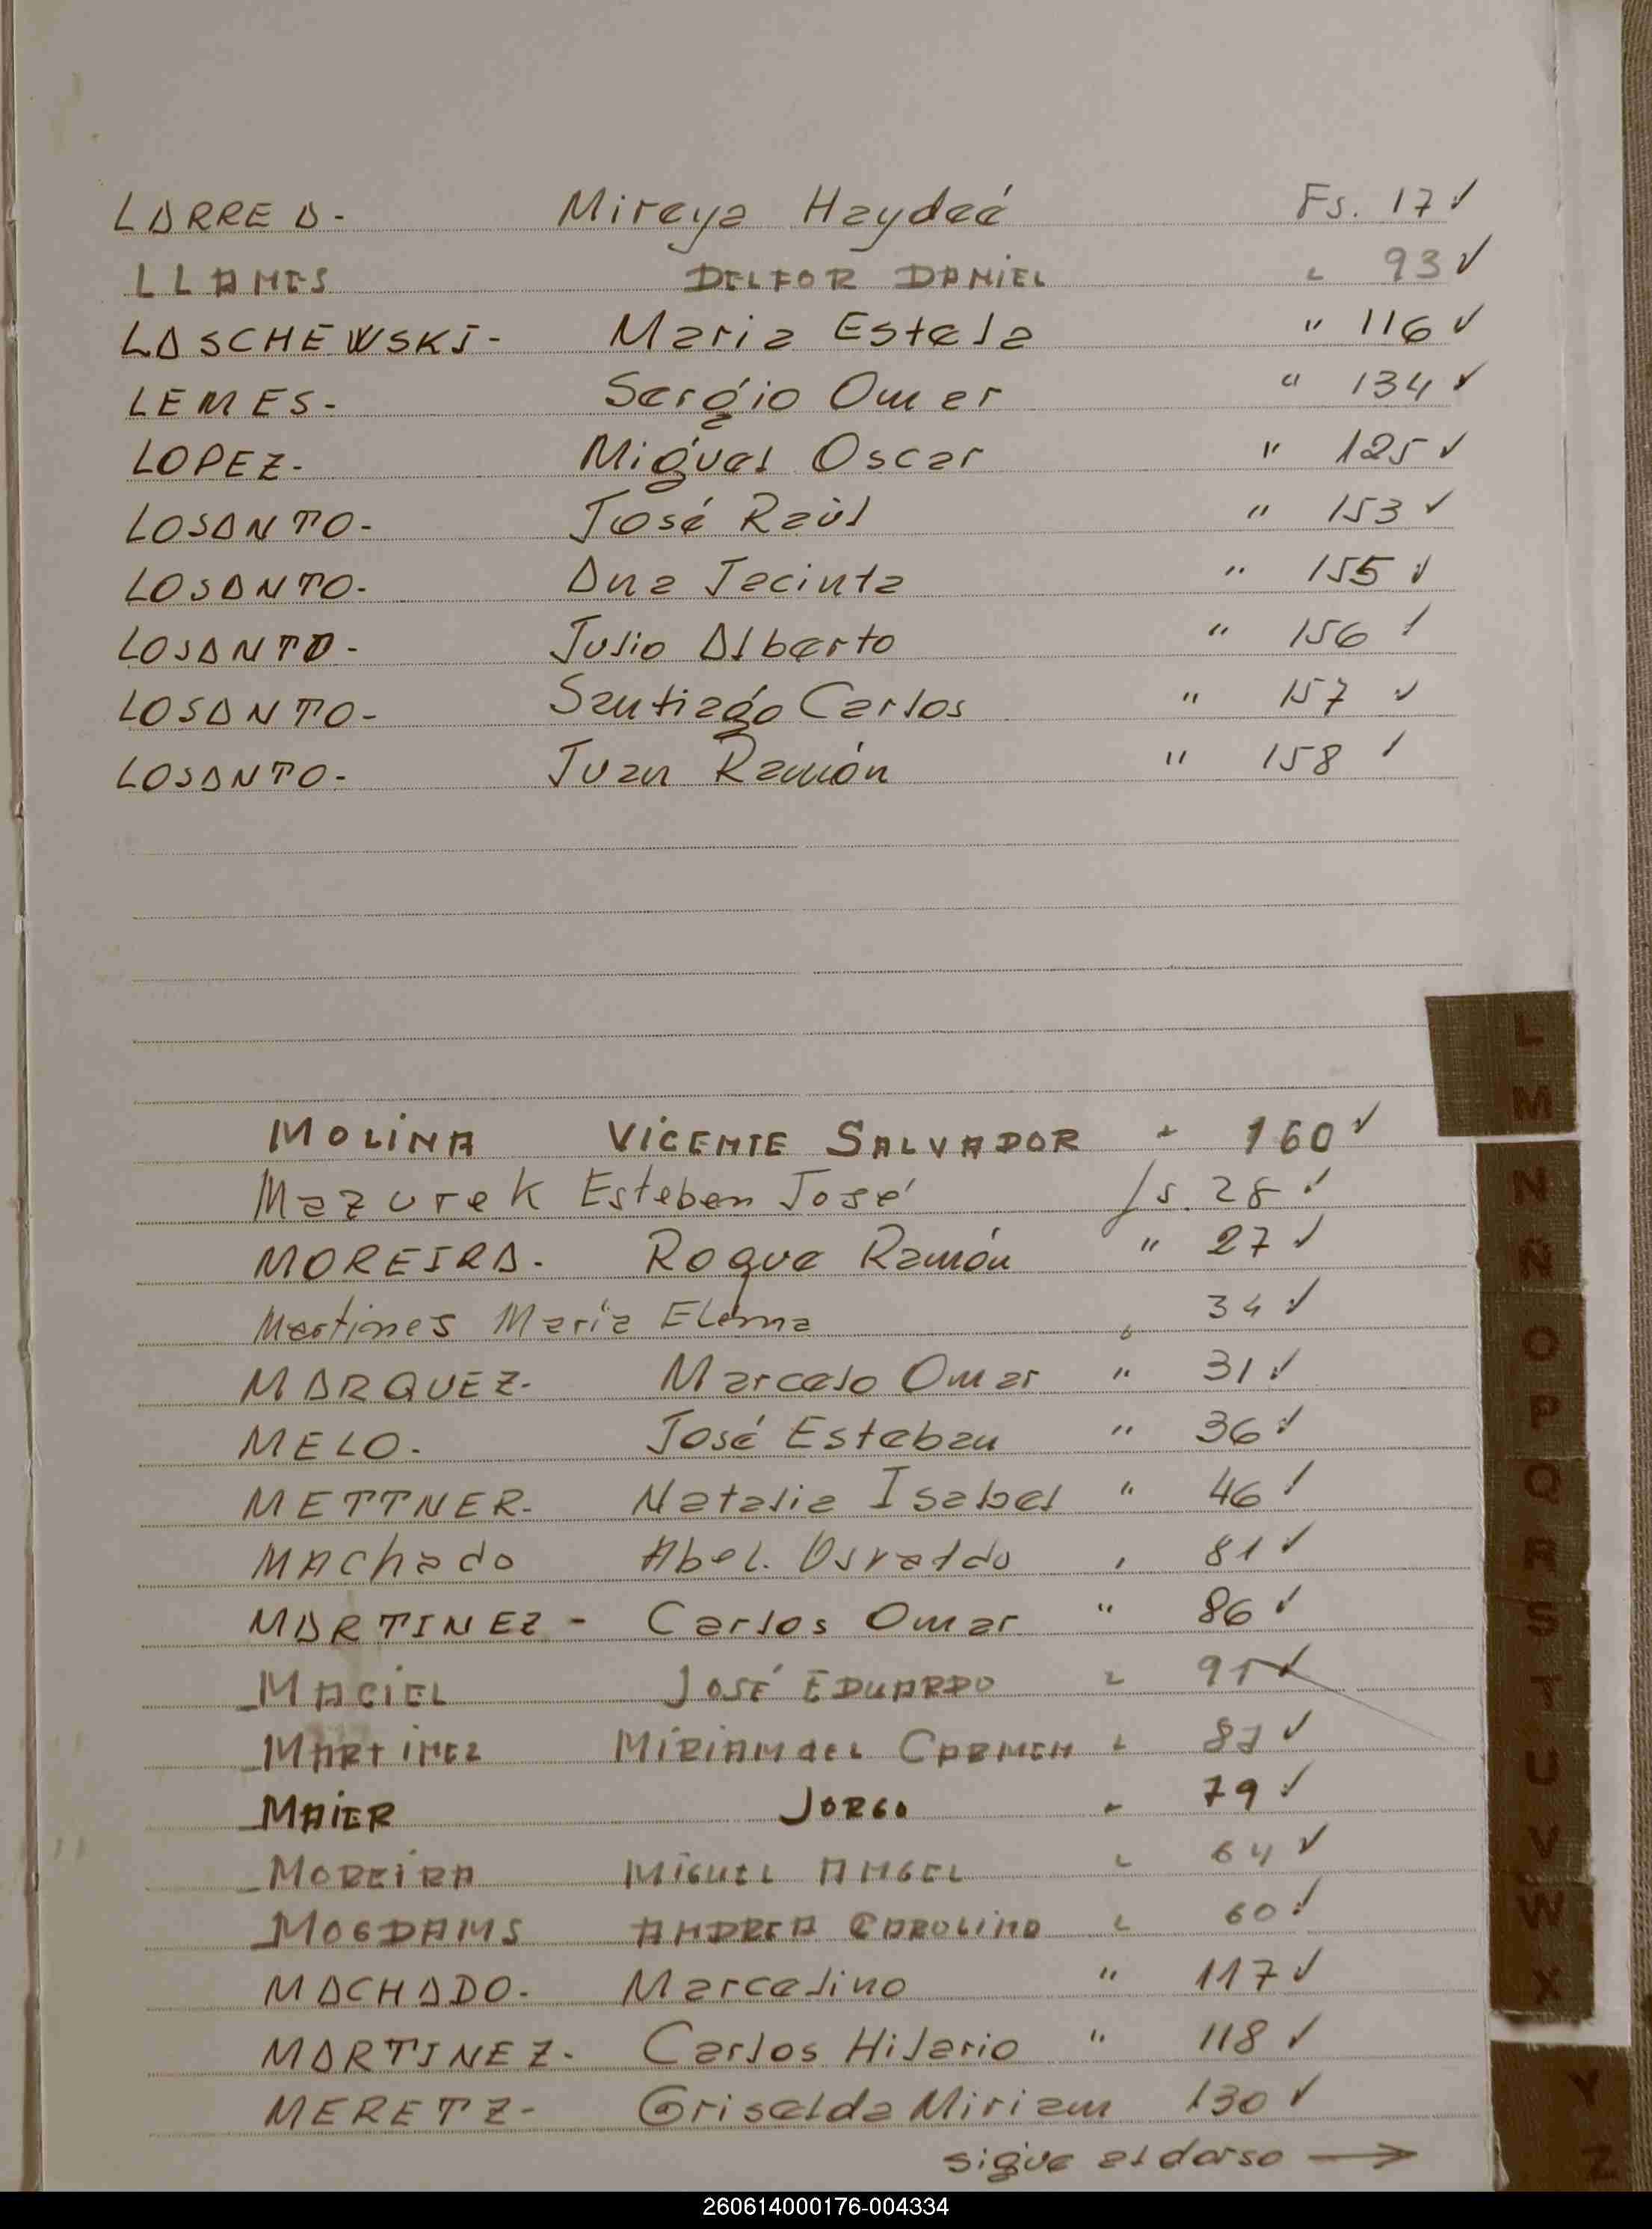 LARREA- Mireya Haydeé Fs. 17 ✓
LLAMES DELFOR DANIEL " 93 ✓
LASCHEWSKI- Maria Estela " 116 ✓
LEMES- Sergio Omar " 134 ✓
LOPEZ- Miguel Oscar " 125 ✓
LOSANTO- José Raúl " 153 ✓
LOSANTO- Ana Jacinta " 155 ✓
LOSANTO- Julio Alberto " 156 ✓
LOSANTO- Santiago Carlos " 157 ✓
LOSANTO- Juan Ramón " 158 ✓
L
M
MOLINA VICENTE SALVADOR " 160 ✓
Mazurek Esteban José fs. 28 ✓
MOREIRA- Roque Ramón " 27 ✓
Martines María Elena " 34 ✓
MARQUEZ- Marcelo Omar " 31 ✓
MELO- José Esteban " 36 ✓
METTNER- Natalia Isabel " 46 ✓
MAChado Abel Osvaldo " 81 ✓
MARTINEZ- Carlos Omar " 86 ✓
MACIEL JOSÉ EDUARDO " 91 ✓
MARTINEZ MIRIAM del CARMEN " ✓
MAIER JORGO " 79 ✓
MOREIRA MIGUEL ANGEL " 64 ✓
MOGDAMS ANDREA CAROLINA " 60 ✓
MACHADO- Marcelino " 117 ✓
MARTINEZ- Carlos Hilario " 118 ✓
MERETZ- Griselda Miriam 130 ✓
sigue al dorso →
N
Ñ
O
P
Q
R
S
T
U
V
W
X
Y
Z
260614000176-004334